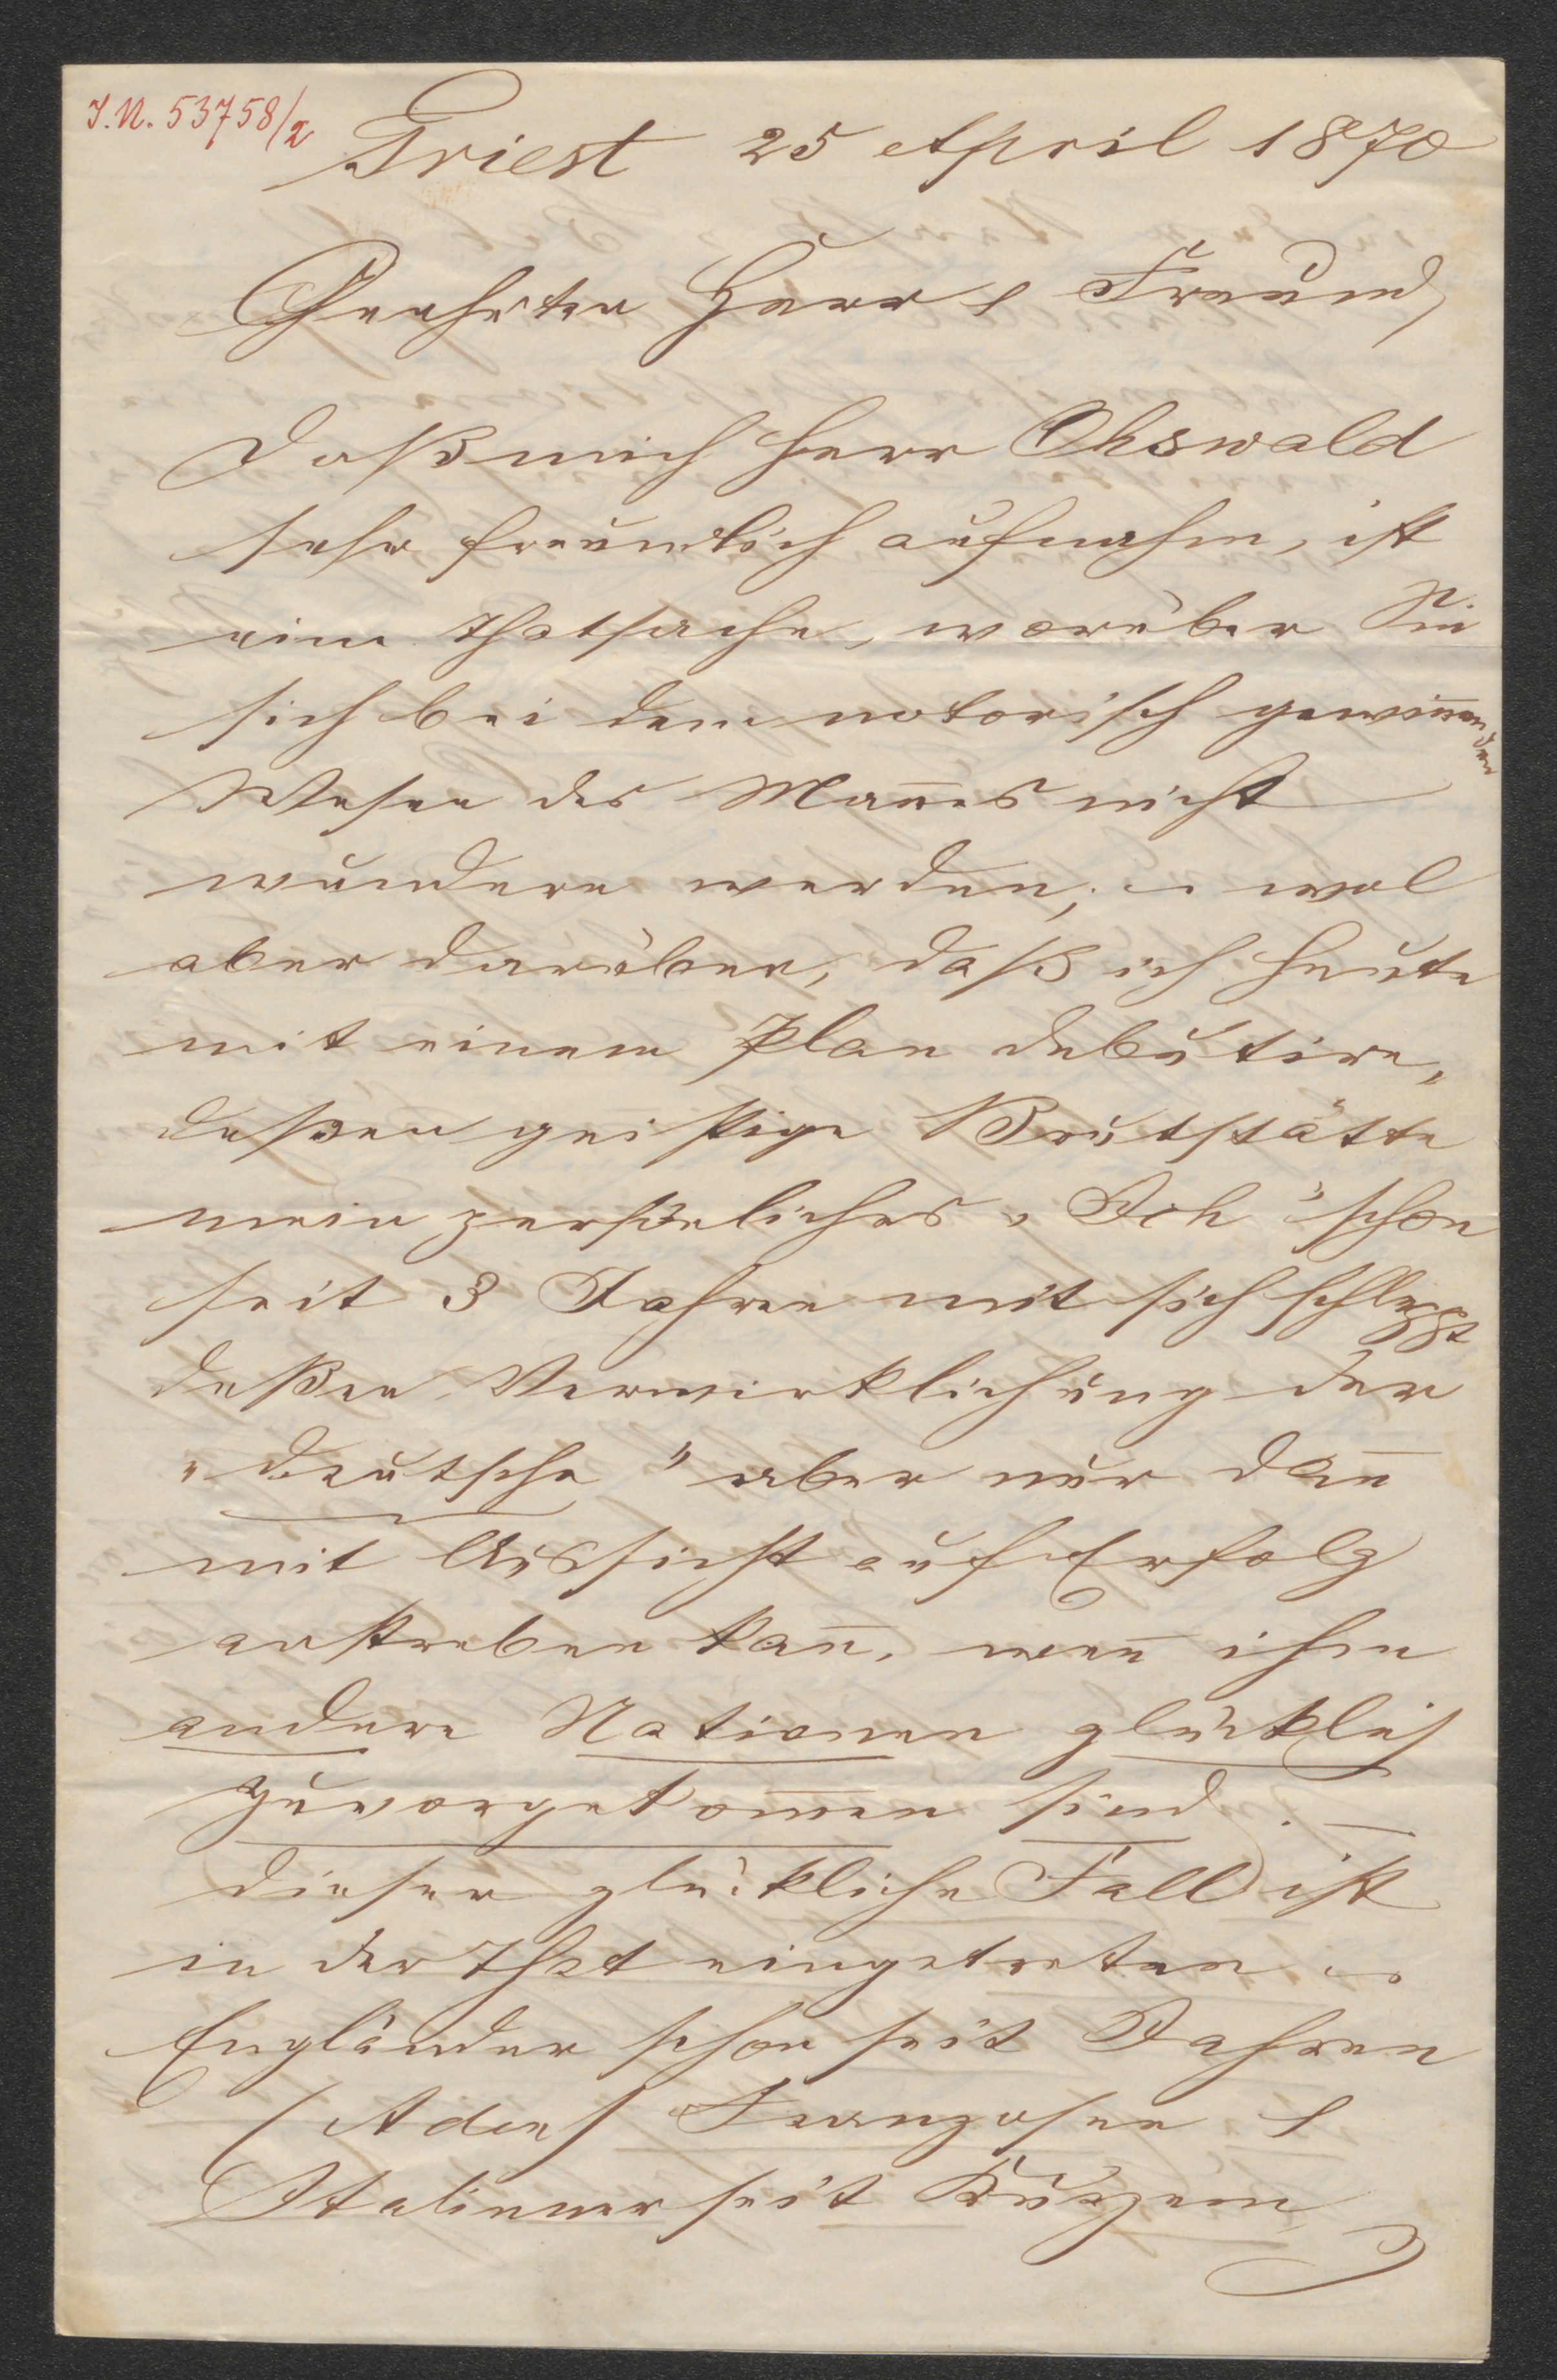 I.N. 53758/2
Triest 25 April 1870
Geehrter Herr & Freund,
Daß mich Herr Ohswald
sehr freundlich aufnahm, ist
eine Thatsache, worüber Sie
sich bei dem notorisch gewin̅enden
Wesen des Man̅es nicht
wundern werden, wol
aber darüber, daß ich heute
mit einem Plan debütire,
deßen geistige Brutstätte
mein persönliches „Ich" schon
seit 3 Jahren mit sich schleppt
deßen Verwirklichung der
„Deutsche" aber nur dan̅
mit Aussicht auf Erfolg
anstreben kan̅, wen̅ ihm
andere Nationen glücklich
zuvorgekom̅en sind. —
Dieser glückliche Fall ist
in der That eingetreten
Engländer schon seit Jahren
(Aden) Franzosen &
Italiener seit Kurzem